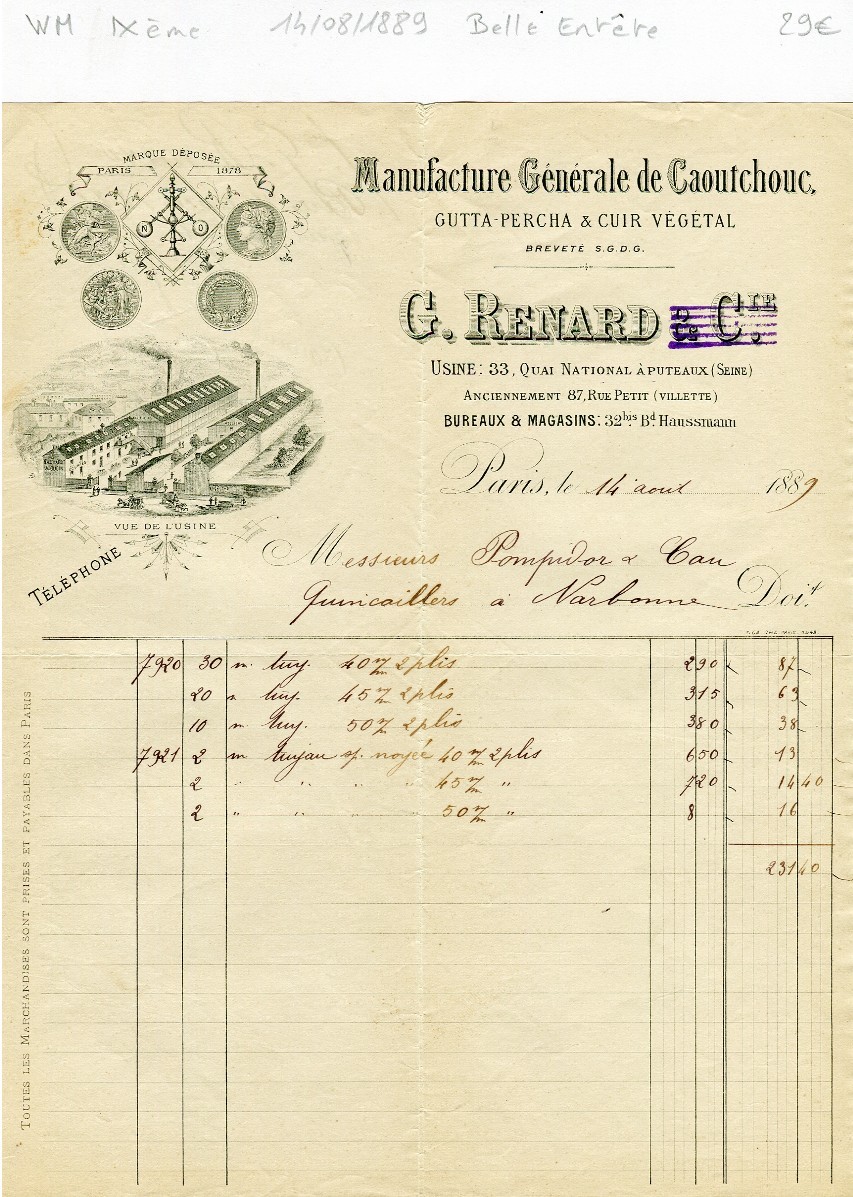 WM IXème 14/08/1889 Belle Entête 29€
MARQUE DÉPOSÉE
PARIS 1878
N O
Manufacture Générale de Caoutchouc,
GUTTA-PERCHA & CUIR VÉGÉTAL
BREVETÉ S.G.D.G.
G. RENARD & CIE
USINE: 33, QUAI NATIONAL À PUTEAUX (SEINE)
ANCIENNEMENT 87, RUE PETIT (VILLETTE)
BUREAUX & MAGASINS: 32bis Bd Haussmann
VUE DE L'USINE
TÉLÉPHONE
Paris, le 14 aout 1889
Messieurs Pompidor & Cau
Quincaillers à Narbonne Doit
7920 30 m. tuy. 40 m/m 2 plis 290 87
20 " tuy. 45 m/m 2 plis 315 63
10 m tuy. 50 m/m 2 plis 380 38
7921 2 m tuyau sp. noyée 40 m/m 2 plis 650 13
2 " " " " 45 m/m " 720 14 40
2 " " " " 50 m/m " 8 16
231 40
TOUTES LES MARCHANDISES SONT PRISES ET PAYABLES DANS PARIS